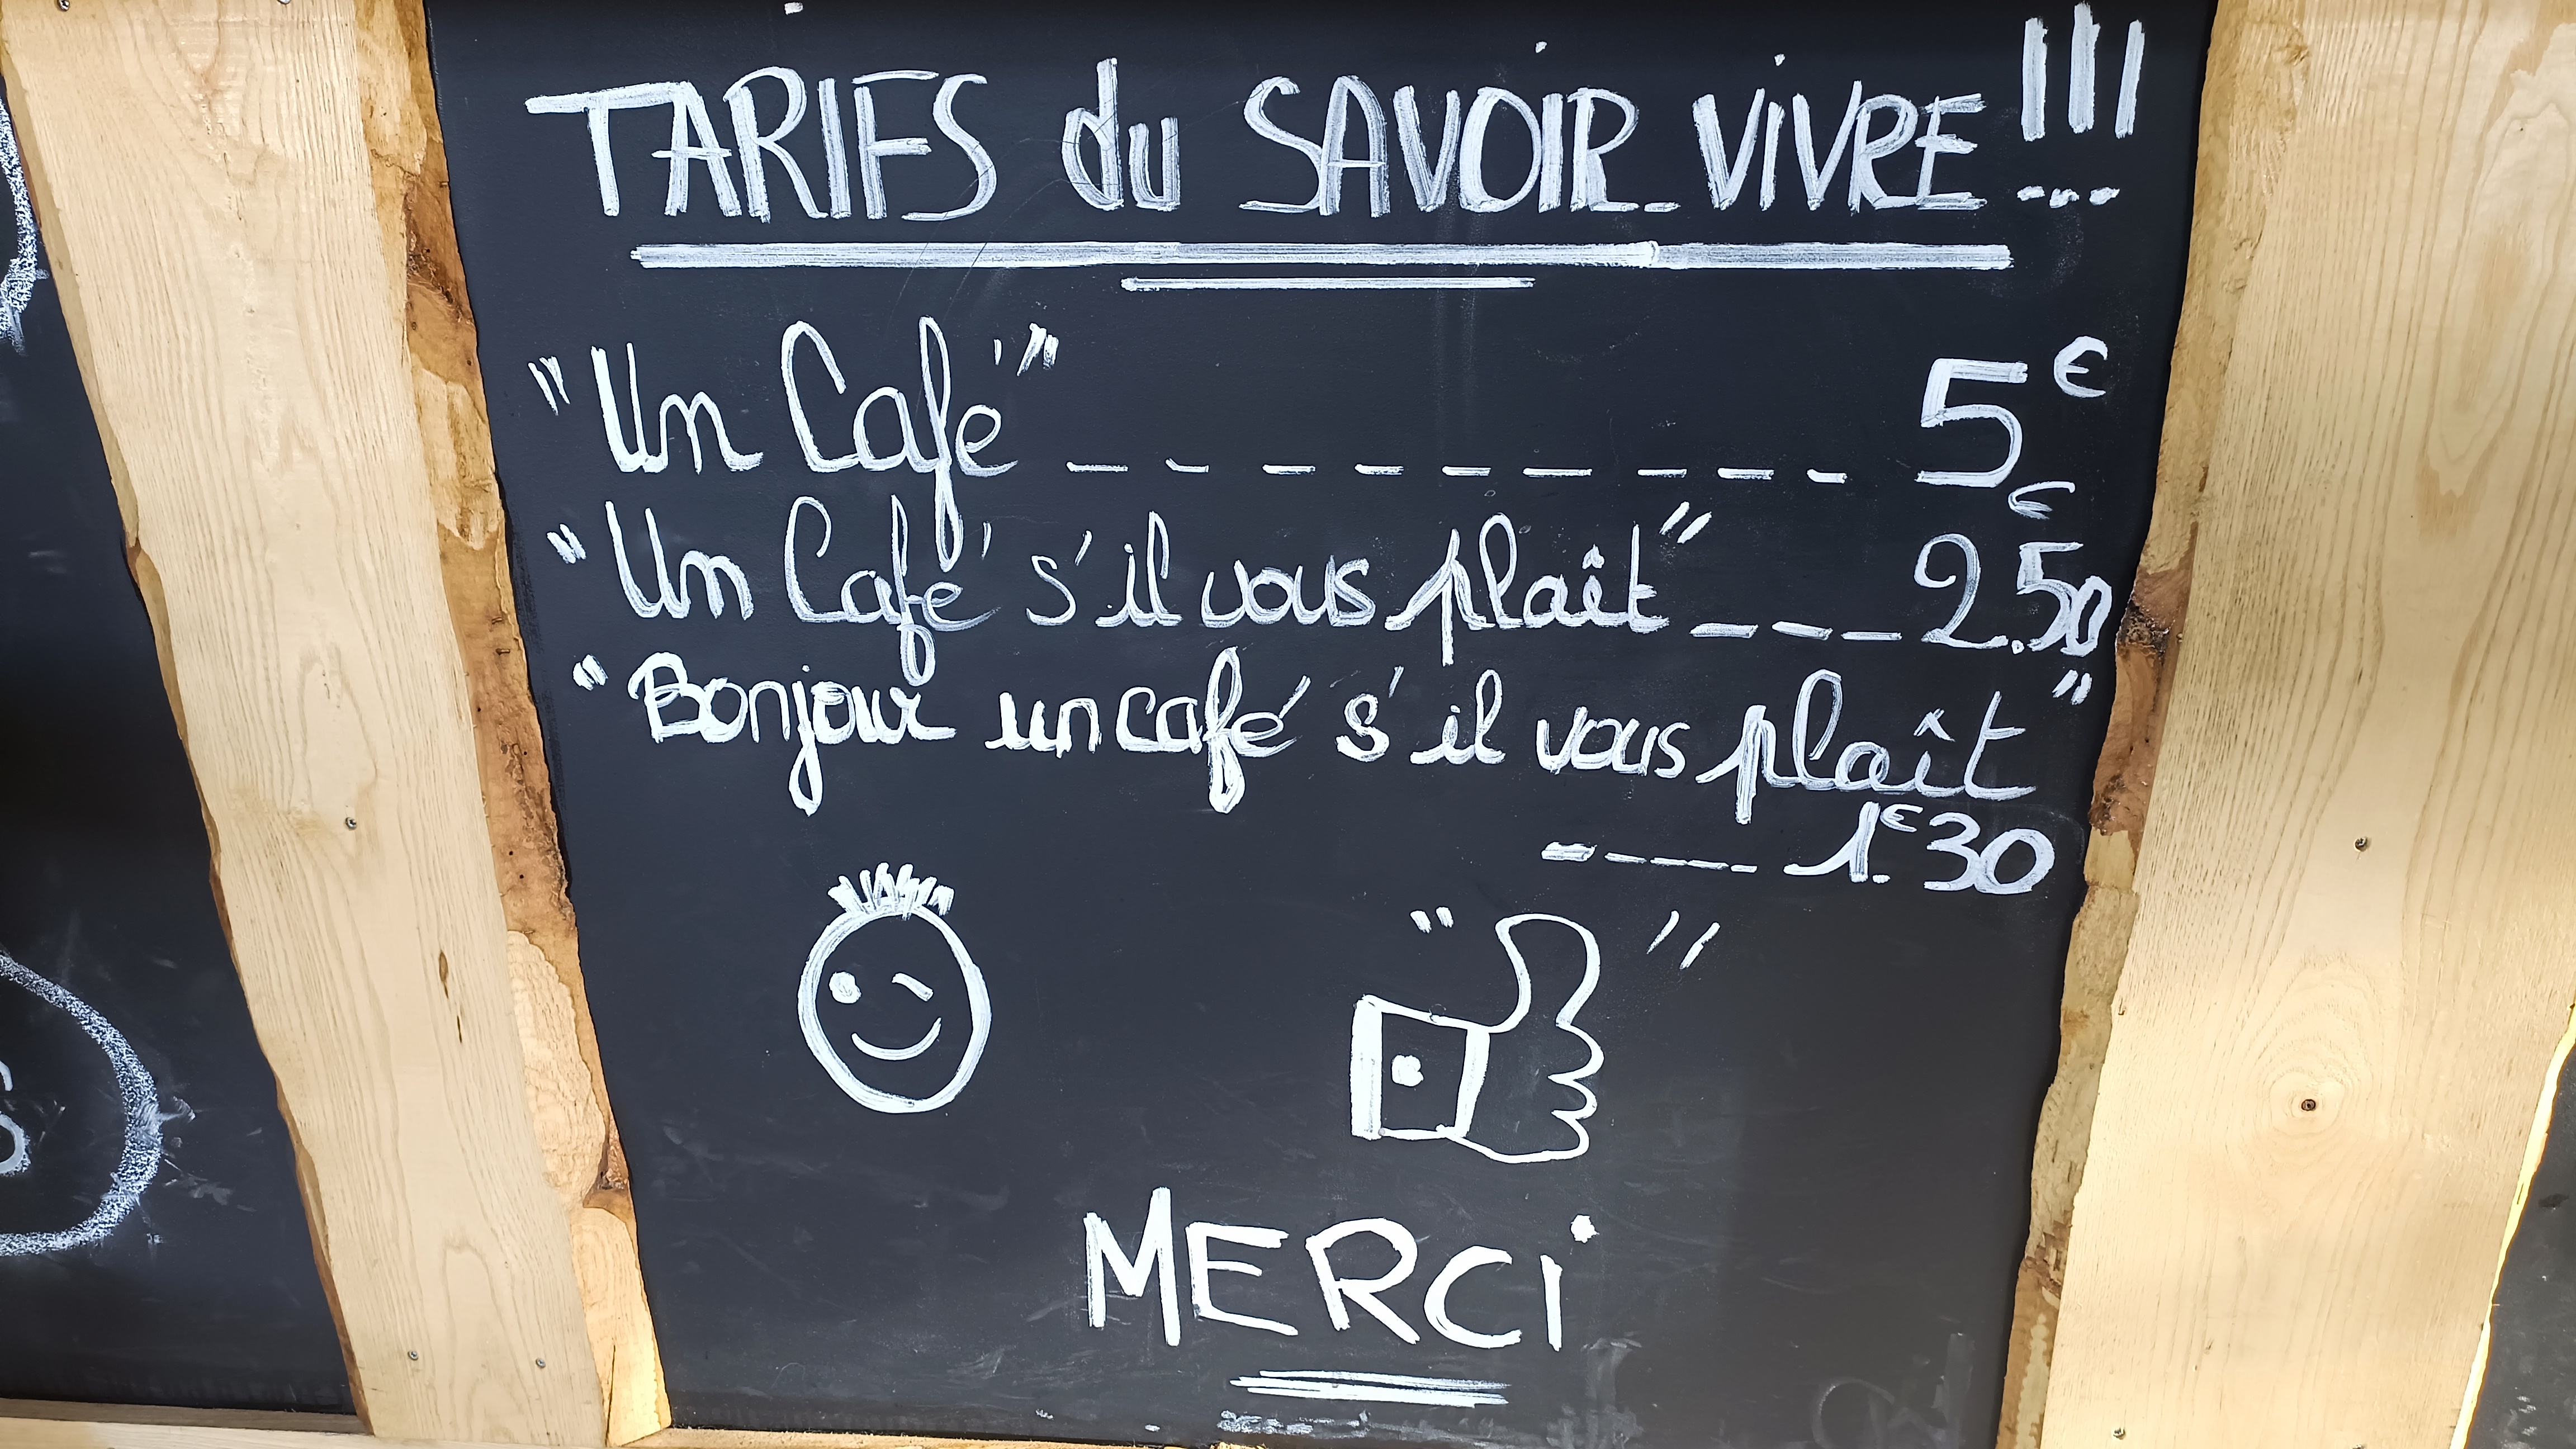 TARIFS du SAVOIR-VIVRE !!!
"Un Café" _ _ _ _ _ _ _ _ _ 5€
"Un Café s'il vous plaît" _ _ _ 2.50€
"Bonjour un café s'il vous plaît"
_ _ _ _ _ 1.€30
MERCi